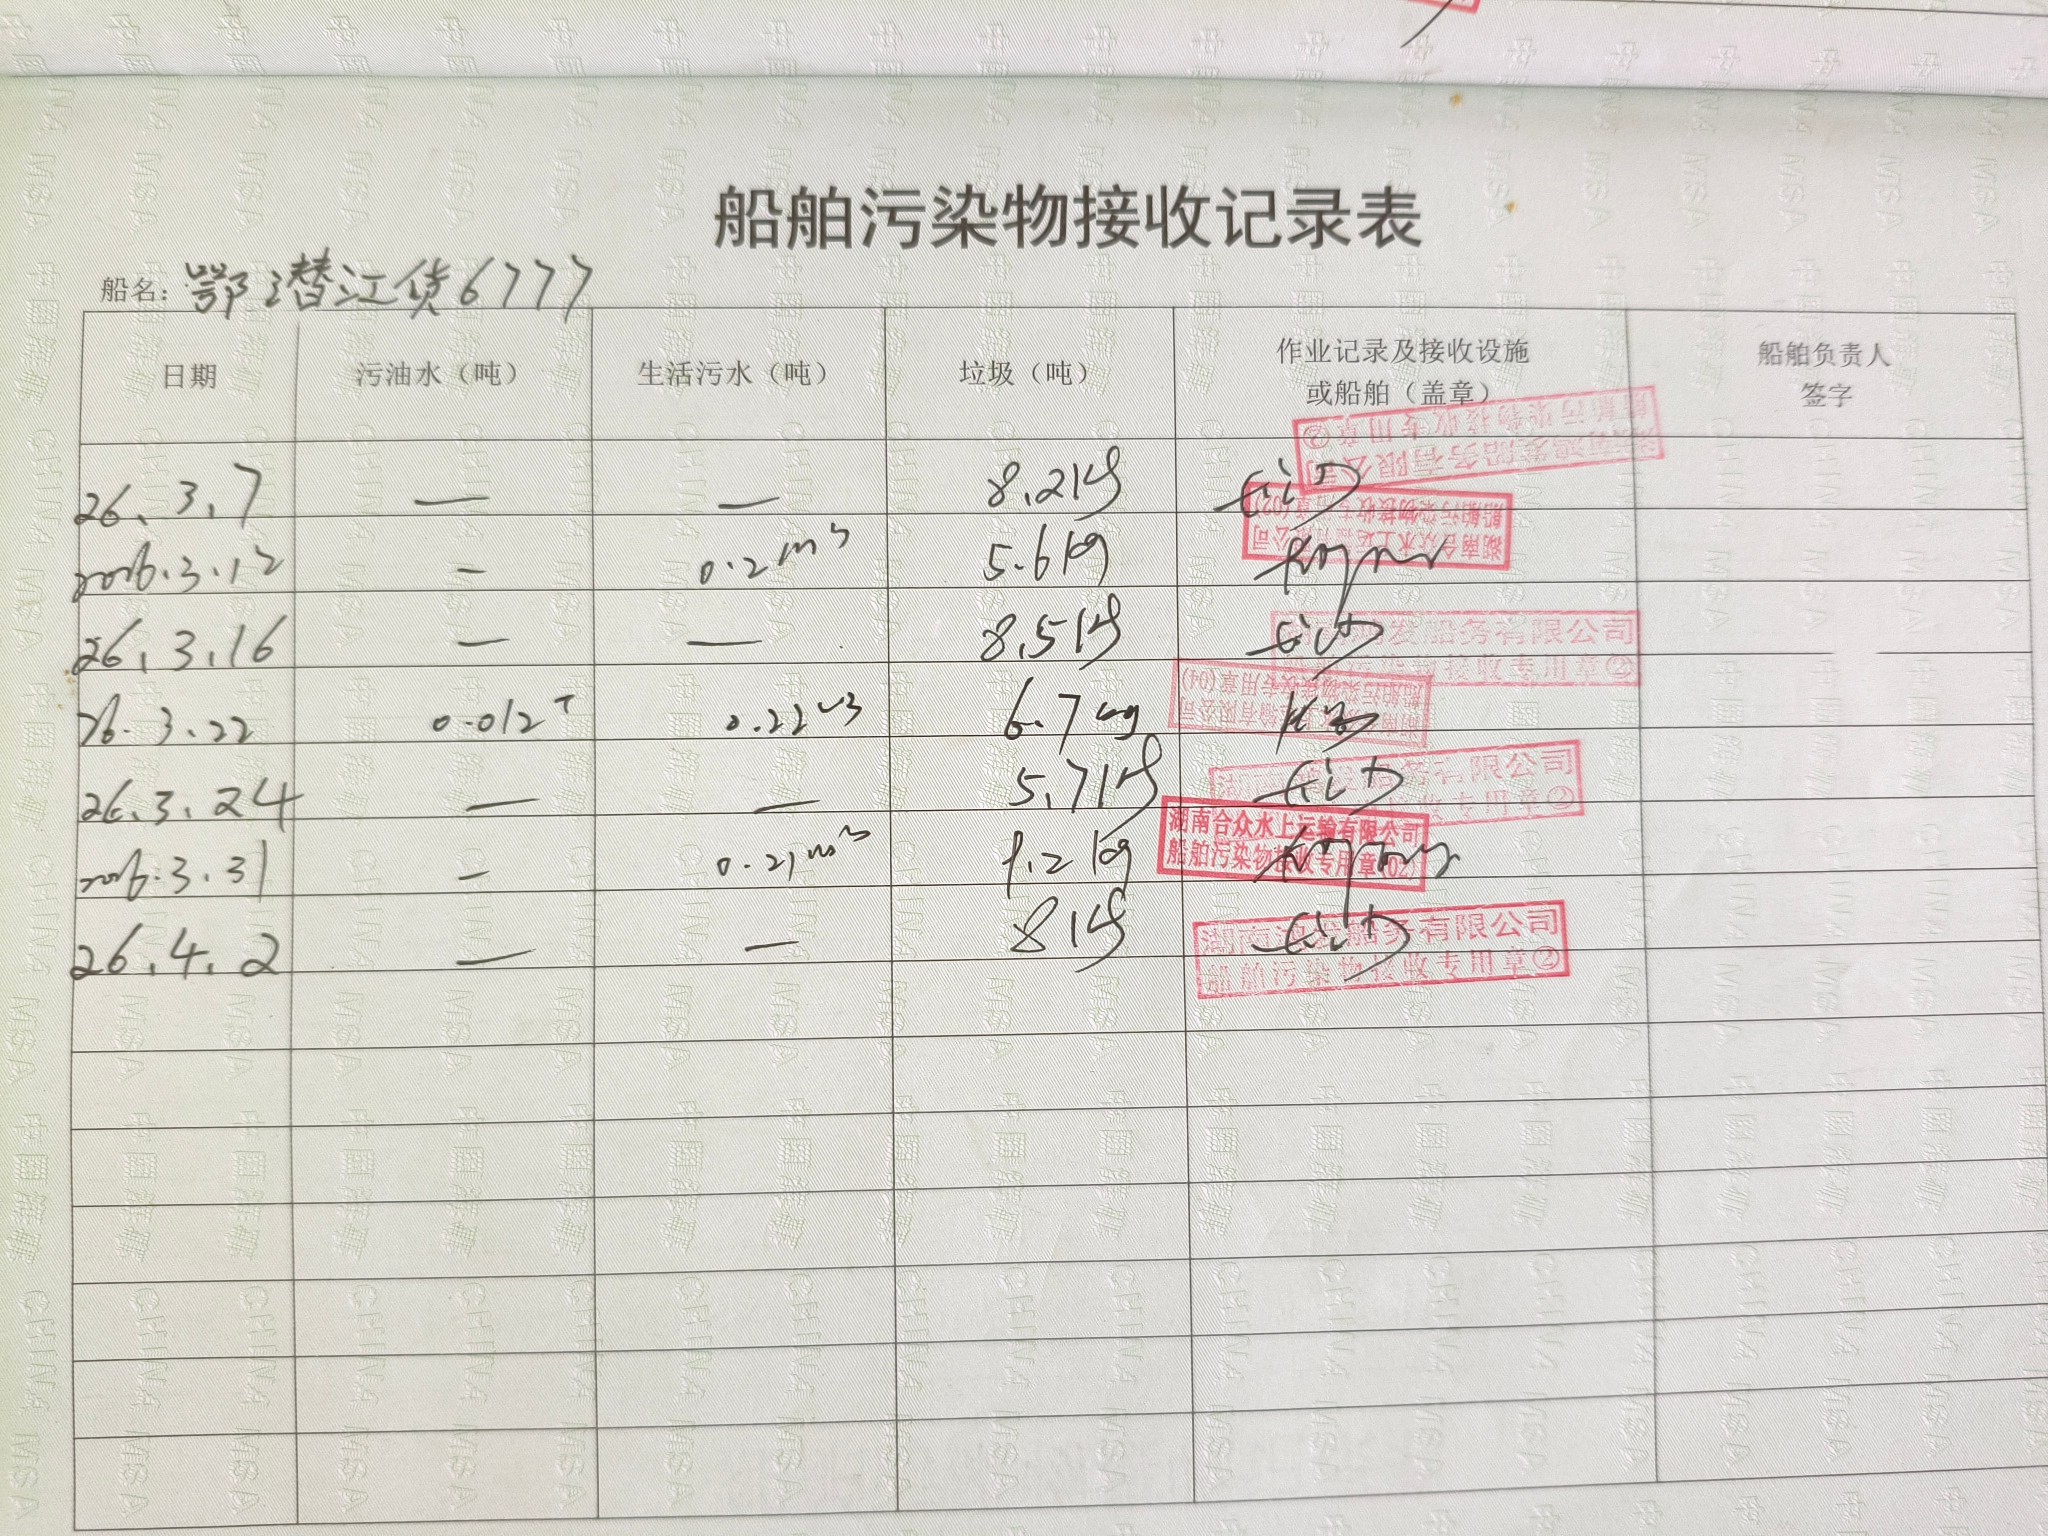 船舶污染物接收记录表
船名：鄂潜江货6777
日期 污油水（吨） 生活污水（吨） 垃圾（吨） 作业记录及接收设施或船舶（盖章） 船舶负责人签字
26.3.7 — — 8.2kg
船舶污染物接收专用章②
2026.3.12 - 0.2m³ 5.6kg
湖南合众水上运输有限公司
船舶污染物接收专用章(02)
26.3.16 — — 8.5kg
发船务有限公司
接收专用章②
26.3.22 0.012T 0.22m3 6.7kg
船舶污染物接收专用章(04)
26.3.24 — — 5.7kg
务有限公司
接收专用章②
2026.3.31 - 0.21m³ 1.2kg
湖南合众水上运输有限公司
船舶污染物接收专用章(02)
26.4.2 — — 8kg
湖南 发船务有限公司
船舶污染物接收专用章②
中国海事 CHINA MSA